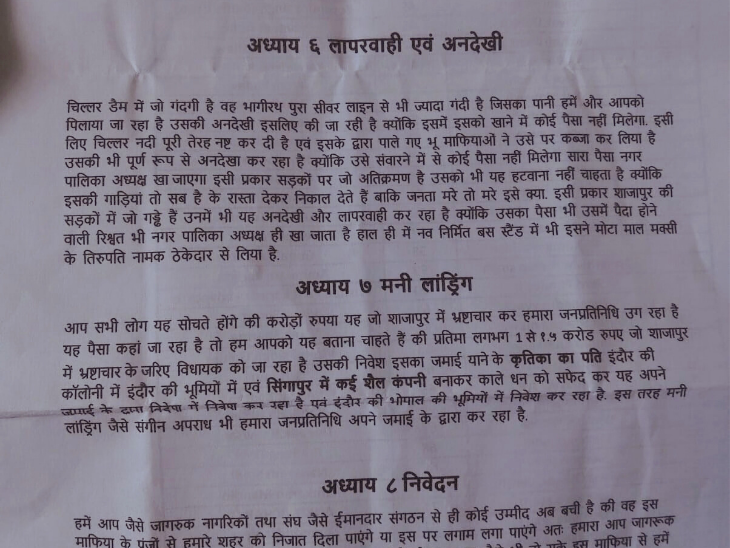 अध्याय ६ लापरवाही एवं अनदेखी
चिल्लर डैम में जो गंदगी है वह भागीरथ पुरा सीवर लाइन से भी ज्यादा गंदी है जिसका पानी हमें और आपको
पिलाया जा रहा है उसकी अनदेखी इसलिए की जा रही है क्योंकि इसमें इसको खाने में कोई पैसा नहीं मिलेगा. इसी
लिए चिल्लर नदी पूरी तेरह नष्ट कर दी है एवं इसके द्वारा पाले गए भू माफियाओं ने उसे पर कब्जा कर लिया है
उसकी भी पूर्ण रूप से अनदेखा कर रहा है क्योंकि उसे संवारने में से कोई पैसा नहीं मिलेगा सारा पैसा नगर
पालिका अध्यक्ष खा जाएगा इसी प्रकार सड़कों पर जो अतिक्रमण है उसको भी यह हटवाना नहीं चाहता है क्योंकि
इसकी गाड़ियां तो सब है के रास्ता देकर निकाल देते हैं बाकि जनता मरे तो मरे इसे क्या. इसी प्रकार शाजापुर की
सड़कों में जो गड्ढे हैं उनमें भी यह अनदेखी और लापरवाही कर रहा है क्योंकि उसका पैसा भी उसमें पैदा होने
वाली रिश्वत भी नगर पालिका अध्यक्ष ही खा जाता है हाल ही में नव निर्मित बस स्टैंड में भी इसने मोटा माल मक्सी
के तिरुपति नामक ठेकेदार से लिया है.
अध्याय ७ मनी लांड्रिंग
आप सभी लोग यह सोचते होंगे की करोड़ों रुपया यह जो शाजापुर में भ्रष्टाचार कर हमारा जनप्रतिनिधि उग रहा है
यह पैसा कहां जा रहा है तो हम आपको यह बताना चाहते हैं की प्रतिमा लगभग 1 से १.५ करोड रुपए जो शाजापुर
में भ्रष्टाचार के जरिए विधायक को जा रहा है उसकी निवेश इसका जमाई याने के कृतिका का पति इंदौर की
कॉलोनी में इंदौर की भूमियों में एवं सिंगापुर में कई शैल कंपनी बनाकर काले धन को सफेद कर यह अपने
जमाई के द्वारा विदेश में निवेश कर रहा है एवं इंदौर की भोपाल की भूमियों में निवेश कर रहा है. इस तरह मनी
लांड्रिंग जैसे संगीन अपराध भी हमारा जनप्रतिनिधि अपने जमाई के द्वारा कर रहा है.
अध्याय ८ निवेदन
हमें आप जैसे जागरुक नागरिकों तथा संघ जैसे ईमानदार संगठन से ही कोई उम्मीद अब बची है की वह इस
माफिया के पंजों से हमारे शहर को निजात दिला पाएंगे या इस पर लगाम लगा पाएंगे अतः हमारा आप जागरूक
इस माफिया से हमें